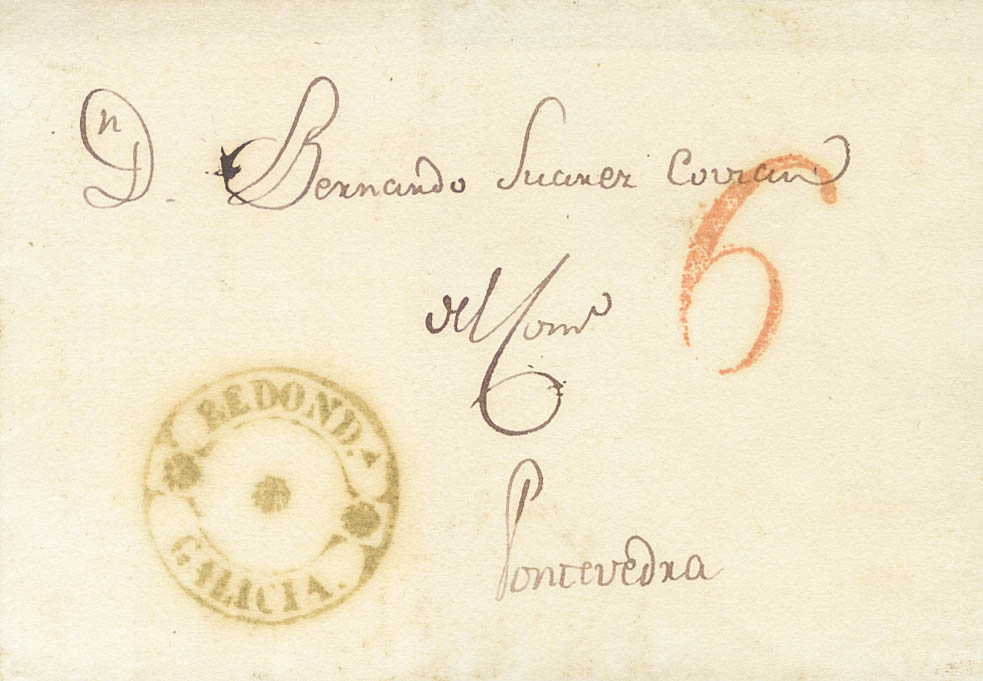 Dn. Bernardo Suarez Covian
del Comº
6
Pontevedra
REDONDA
GALICIA.